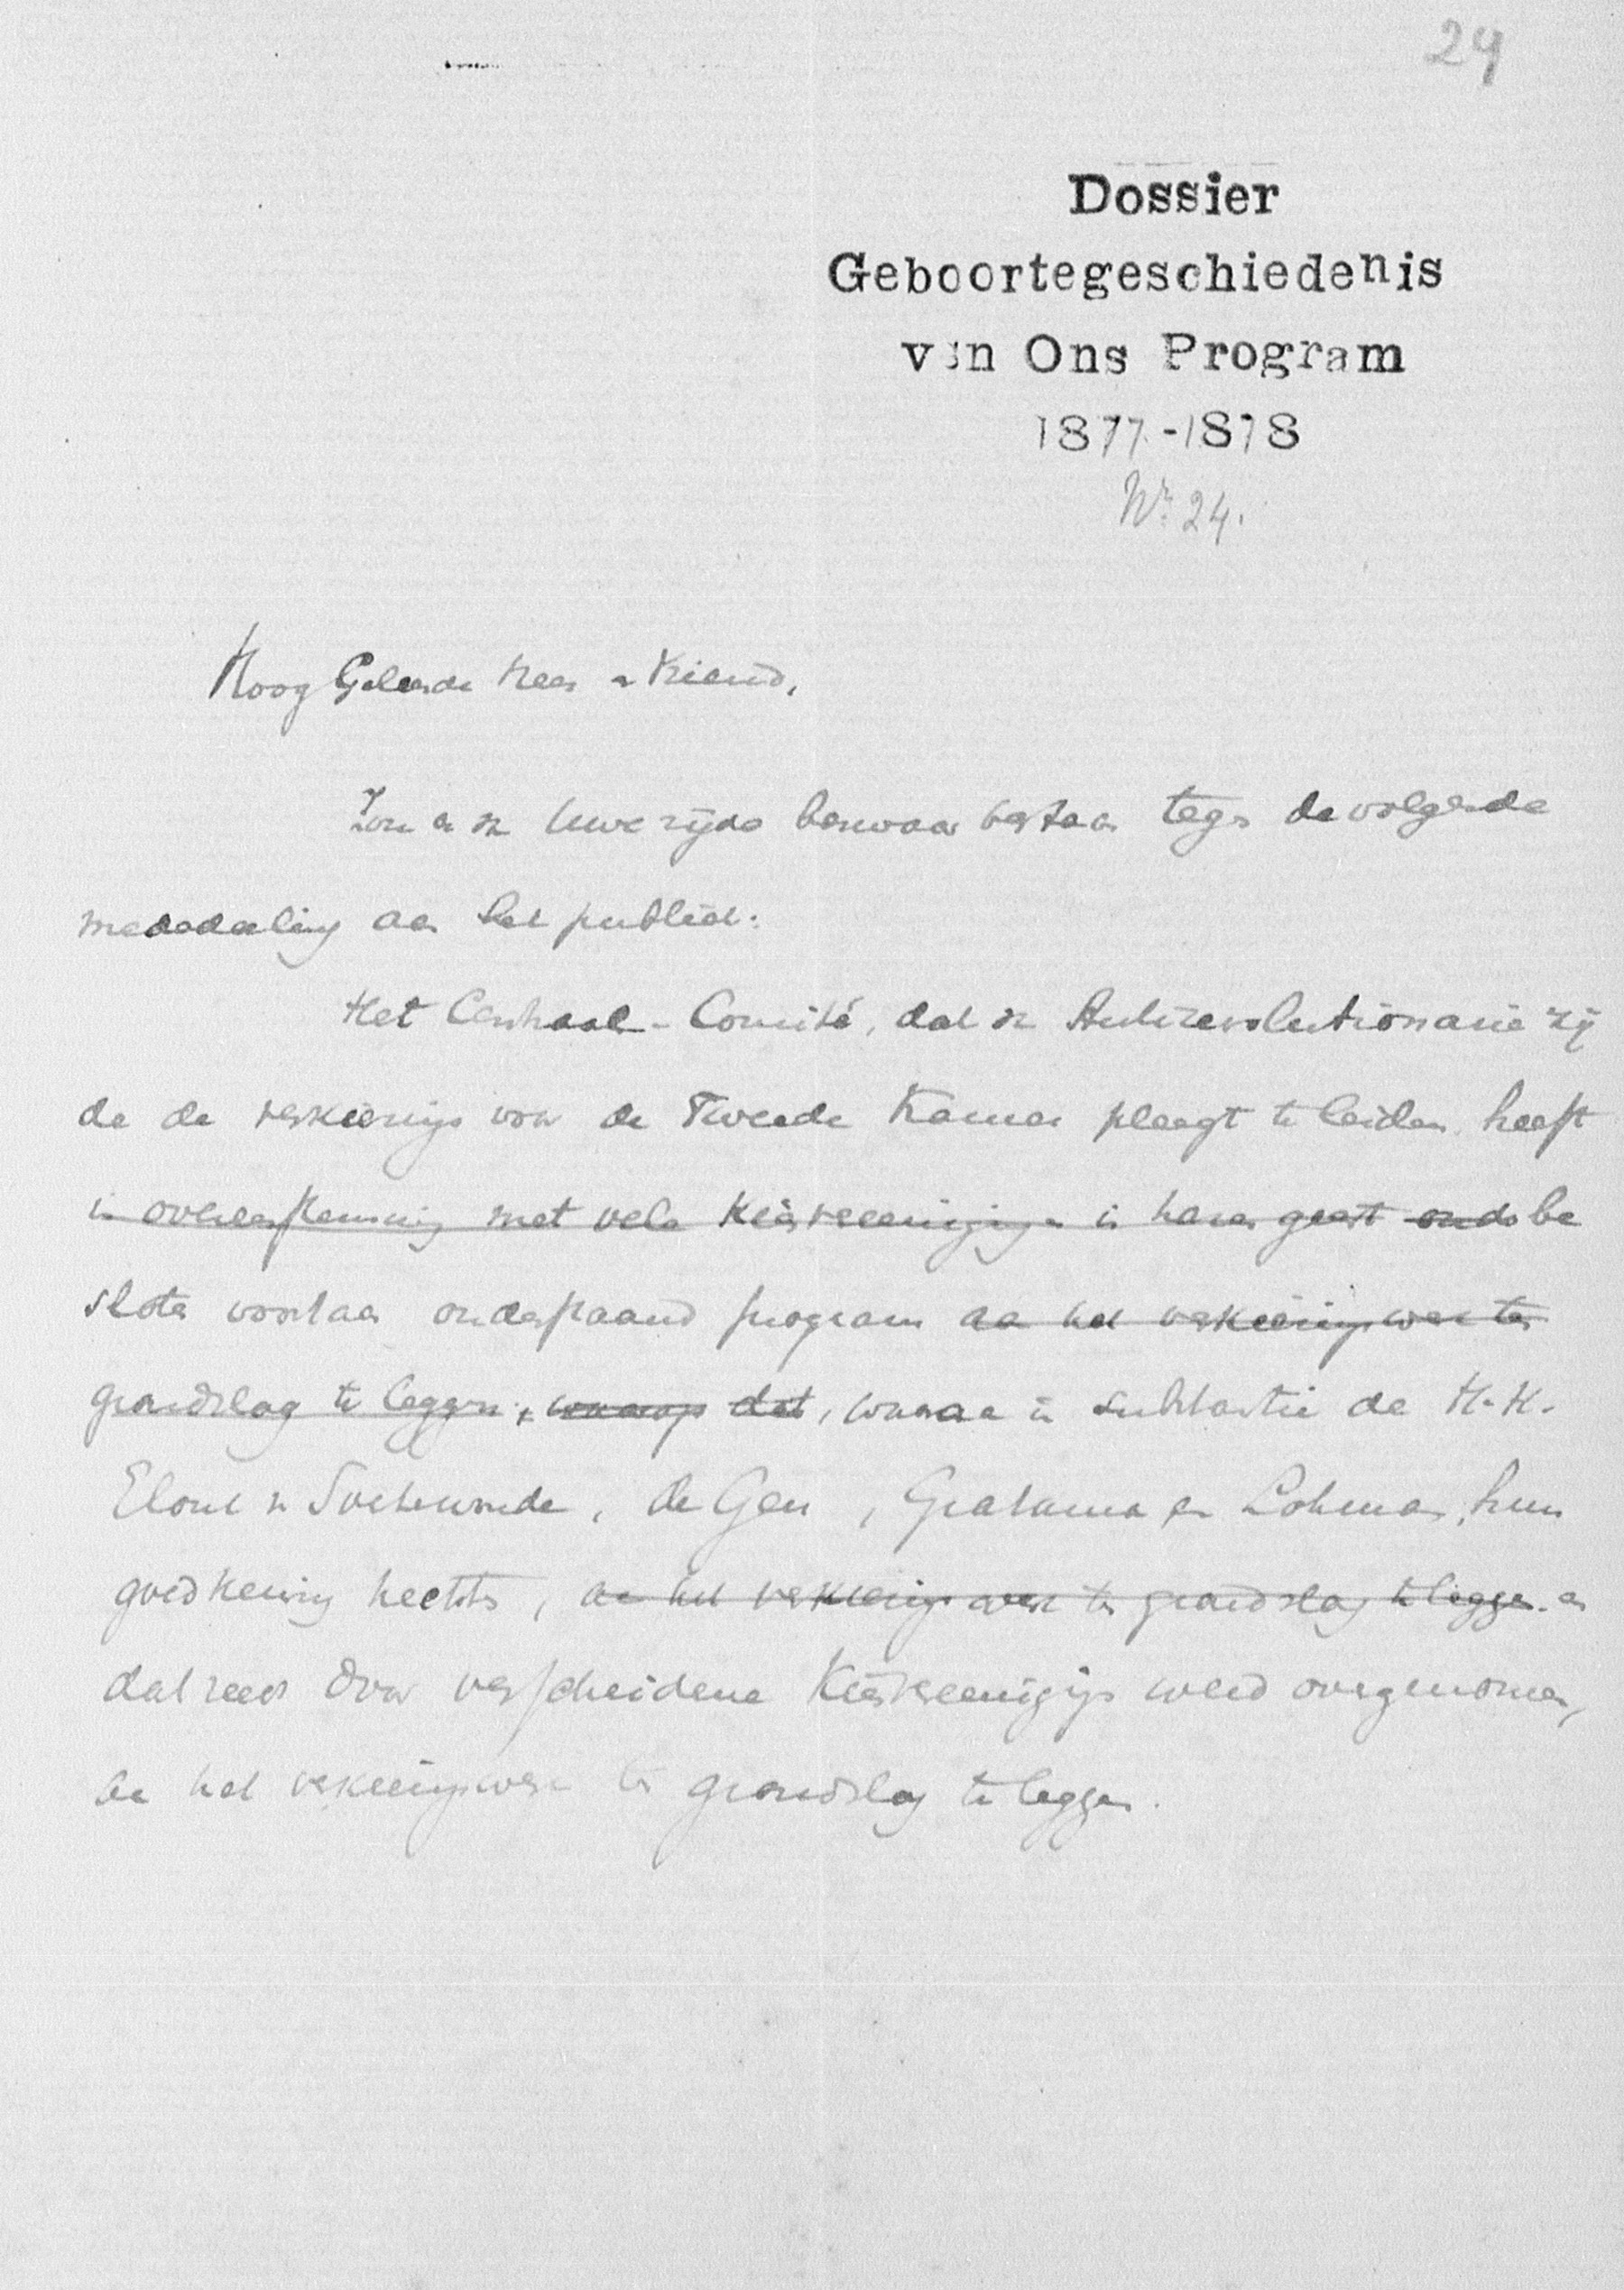 24
Dossier
Geboortegeschiedenis
van Ons Program
1877-1878
Nr. 24.
Hoog Geleerde Heer en Vriend,
Zou er van Uwe zijde bezwaar bestaan tegen de volgende
mededeeling aan het publiek:
Het Centraal-Comité, dat van Antirevolutionaire zij
de de verkiezingen voor de Tweede Kamer pleegt te leiden, heeft
in overeenstemming met vele Kiesvereenigingen in haren geest be
sloten voortaan onderstaand program aan het verkiezingswerk ten
grondslag te leggen, waarop dat, waaraan in substantie de H.H.
Elout v. Soeterwoude, de Geer, Gratama en Lohman, hun
goedkeuring hechtten, aan het verkiezingswerk ten grondslag te leggen en
dat reeds door verscheidene Kiesvereenigingen werd overgenomen,
aan het verkiezingswerk ten grondslag te leggen.